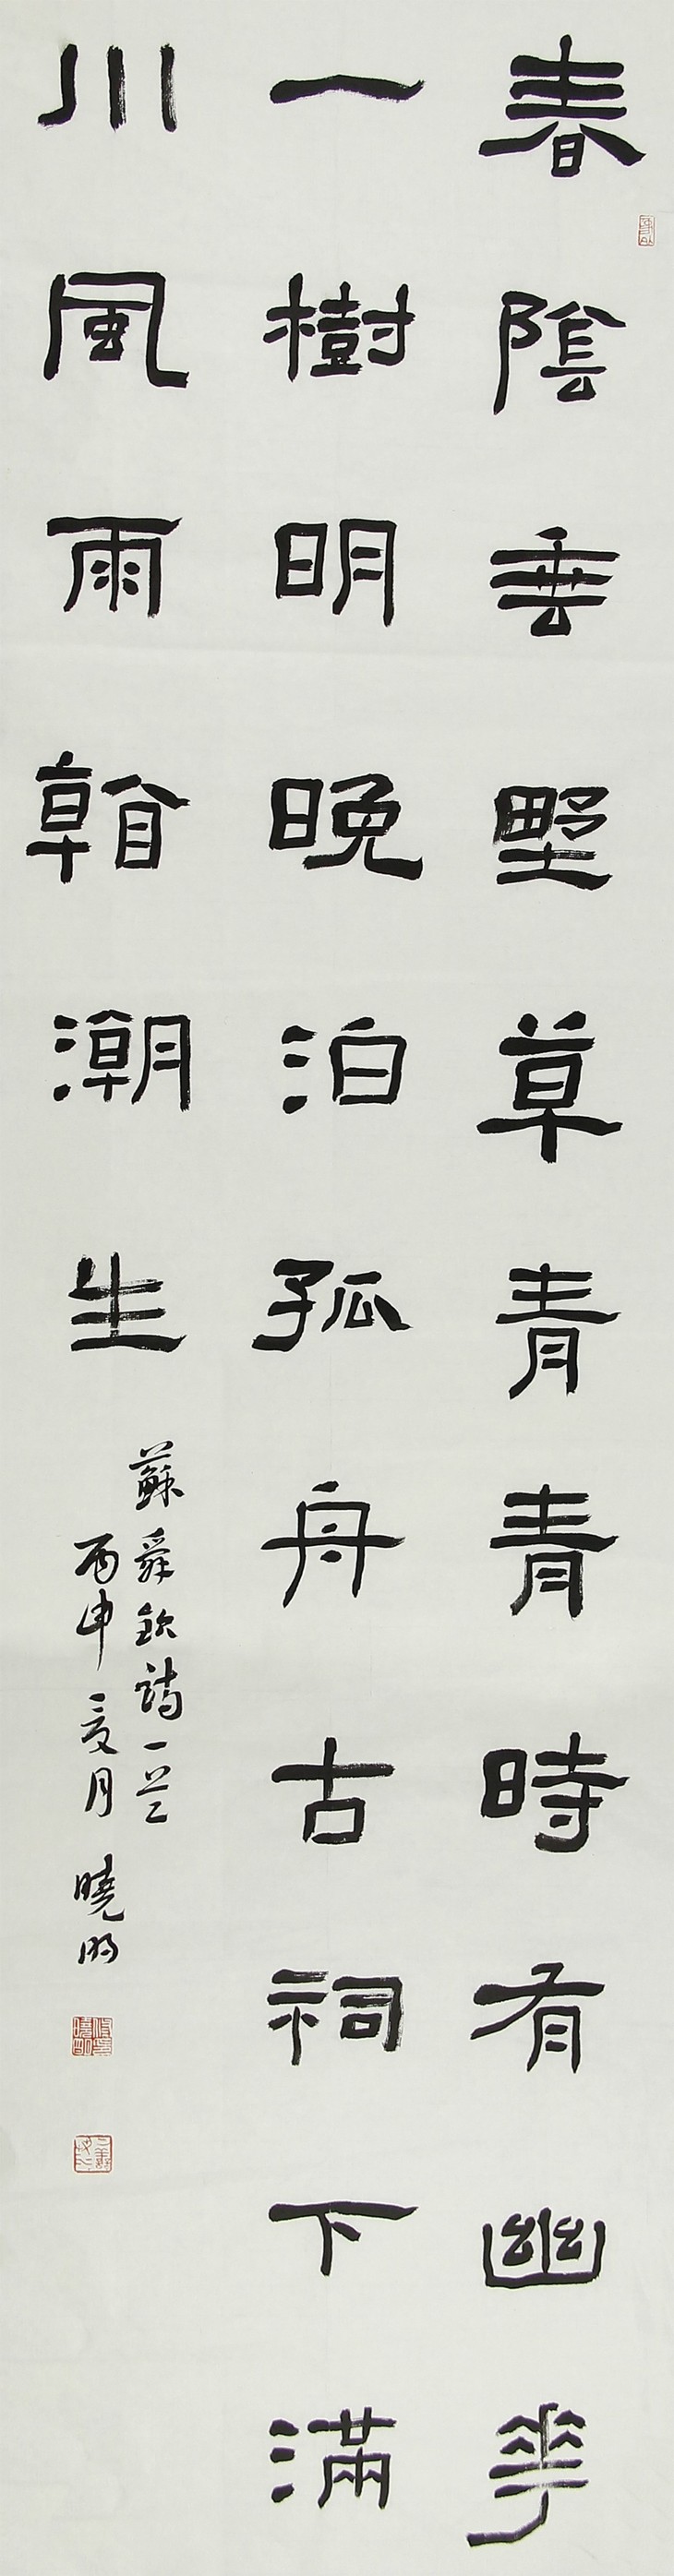 春陰垂野草青青時有幽花
一樹明晚泊孤舟古祠下滿
川風雨看潮生
蘇舜欽詩一首
丙申夏月 曉明